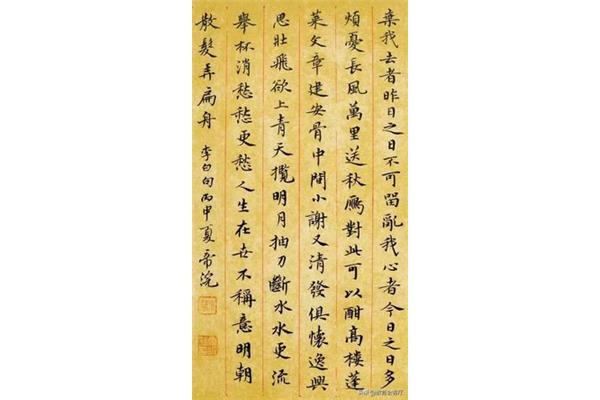 棄我去者昨日之日不可留亂我心者今日之日多
煩憂長風萬里送秋鴈對此可以酣高樓蓬
萊文章建安骨中間小謝又清發俱懷逸興
思壯飛欲上青天攬明月抽刀斷水水更流
舉杯消愁愁更愁人生在世不稱意明朝
散髮弄扁舟 李白句丙申夏